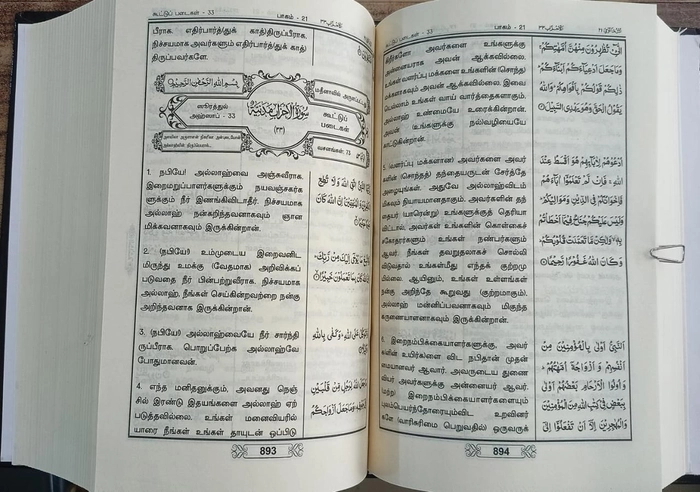 கூட்டுப் படைகள் - 33 பாகம் - 21
பீராக. எதிர்பார்த்(துக் காத்)திருப்பீராக.
நிச்சயமாக அவர்களும் எதிர்பார்த்(துக் காத்)
திருப்பவர்களே.
بِسْمِ اللّٰهِ الرَّحْمٰنِ الرَّحِيْمِ
ஸூரத்துல்
அஹ்ஸாப் - 33
(٣٣)
கூட்டுப்
படைகள்
வசனங்கள்: 73
1. (நபியே!) அல்லாஹ்வை அஞ்சுவீராக.
இறைமறுப்பாளர்களுக்கும் நயவஞ்சகர்க
ளுக்கும் நீர் இணங்கிவிடாதீர். நிச்சயமாக
அல்லாஹ் நன்கறிந்தவனாகவும் ஞான
மிக்கவனாகவும் இருக்கின்றான்.
2. (நபியே!) உம்முடைய இறைவனிட
மிருந்து உமக்கு (வேதமாக) அறிவிக்கப்
படுவதை நீர் பின்பற்றுவீராக. நிச்சயமாக
அல்லாஹ், நீங்கள் செய்கின்றவற்றை நன்கு
அறிந்தவனாக இருக்கின்றான்.
3. (நபியே!) அல்லாஹ்வையே நீர் சார்ந்தி
ருப்பீராக. பொறுப்பேற்க அல்லாஹ்வே
போதுமானவன்.
4. எந்த மனிதனுக்கும், அவனது நெஞ்
சில் இரண்டு இதயங்களை அல்லாஹ் ஏற்
படுத்தவில்லை. உங்கள் மனைவியரில்
யாரை நீங்கள் உங்கள் தாயுடன் ஒப்பிடு
893
கூட்டுப் படைகள் - 33 பாகம் - 21
அவர்களை உங்களுக்கு
அன்னையராக அவன் ஆக்கவில்லை.
உங்கள் வளர்ப்பு மக்களை உங்களின் (சொந்த)
மக்களாகவும் அவன் ஆக்கவில்லை. இவை
யெல்லாம் உங்கள் வாய் வார்த்தைகளாகும்.
அல்லாஹ் உண்மையே உரைக்கின்றான்.
அவன் (உங்களுக்கு) நல்வழியையே
காட்டுகின்றான்.
5. (வளர்ப்பு மக்களான) அவர்களை அவர்
களின் (சொந்தத்) தந்தையருடன் சேர்த்தே
அழையுங்கள். அதுவே அல்லாஹ்விடம்
மிகவும் நியாயமானதாகும். அவர்களின் தந்
தையர் (யாரென்று) உங்களுக்குத் தெரியா
விட்டால், அவர்கள் உங்களின் கொள்கைச்
சகோதரர்களும் உங்கள் நண்பர்களும்
ஆவர். நீங்கள் தவறுதலாகச் சொல்லி
விடுவதால் உங்கள்மீது எந்தக் குற்றமு
மில்லை. ஆயினும், உங்கள் உள்ளங்கள்
நன்கு அறிந்தே கூறுவது (குற்றமாகும்).
அல்லாஹ் மன்னிப்பவனாகவும் மிகுந்த
கருணையாளனாகவும் இருக்கின்றான்.
6. இறைநம்பிக்கையாளர்களுக்கு, அவர்
களின் உயிர்களை விட நபிதான் முதன்
மையானவர் ஆவார். அவருடைய துணை
வியர் அவர்களுக்கு அன்னையர் ஆவர்.
(மற்ற) இறைநம்பிக்கையாளர்களையும்
புலம்பெயர்ந்தோரையும்விட உறவினர்
களே (வாரிசுரிமை பெறுவதில்) ஒருவருக்
الّٰٓئِيْ تُظٰهِرُوْنَ مِنْهُنَّ اُمَّهٰتِكُمْ ۚ
وَمَا جَعَلَ اَدْعِيَآءَكُمْ اَبْنَآءَكُمْ ؕ
ذٰلِكُمْ قَوْلُكُمْ بِاَفْوَاهِكُمْ ؕ وَاللّٰهُ
يَقُوْلُ الْحَقَّ وَهُوَ يَهْدِى السَّبِيْلَ
اُدْعُوْهُمْ لِاٰبَآئِهِمْ هُوَ اَقْسَطُ عِنْدَ
اللّٰهِ ۚ فَاِنْ لَّمْ تَعْلَمُوْۤا اٰبَآءَهُمْ
فَاِخْوَانُكُمْ فِى الدِّيْنِ وَمَوَالِيْكُمْ ؕ
وَلَيْسَ عَلَيْكُمْ جُنَاحٌ فِيْمَاۤ اَخْطَاْتُمْ
بِهٖ ۙ وَلٰكِنْ مَّا تَعَمَّدَتْ قُلُوْبُكُمْ ؕ
وَكَانَ اللّٰهُ غَفُوْرًا رَّحِيْمًا
اَلنَّبِىُّ اَوْلٰى بِالْمُؤْمِنِيْنَ مِنْ
اَنْفُسِهِمْ وَاَزْوَاجُهٗۤ اُمَّهٰتُهُمْ ؕ
وَاُولُوا الْاَرْحَامِ بَعْضُهُمْ اَوْلٰى
بِبَعْضٍ فِىْ كِتٰبِ اللّٰهِ مِنَ الْمُؤْمِنِيْنَ
وَالْمُهٰجِرِيْنَ اِلَّاۤ اَنْ تَفْعَلُوْۤا اِلٰٓى
894